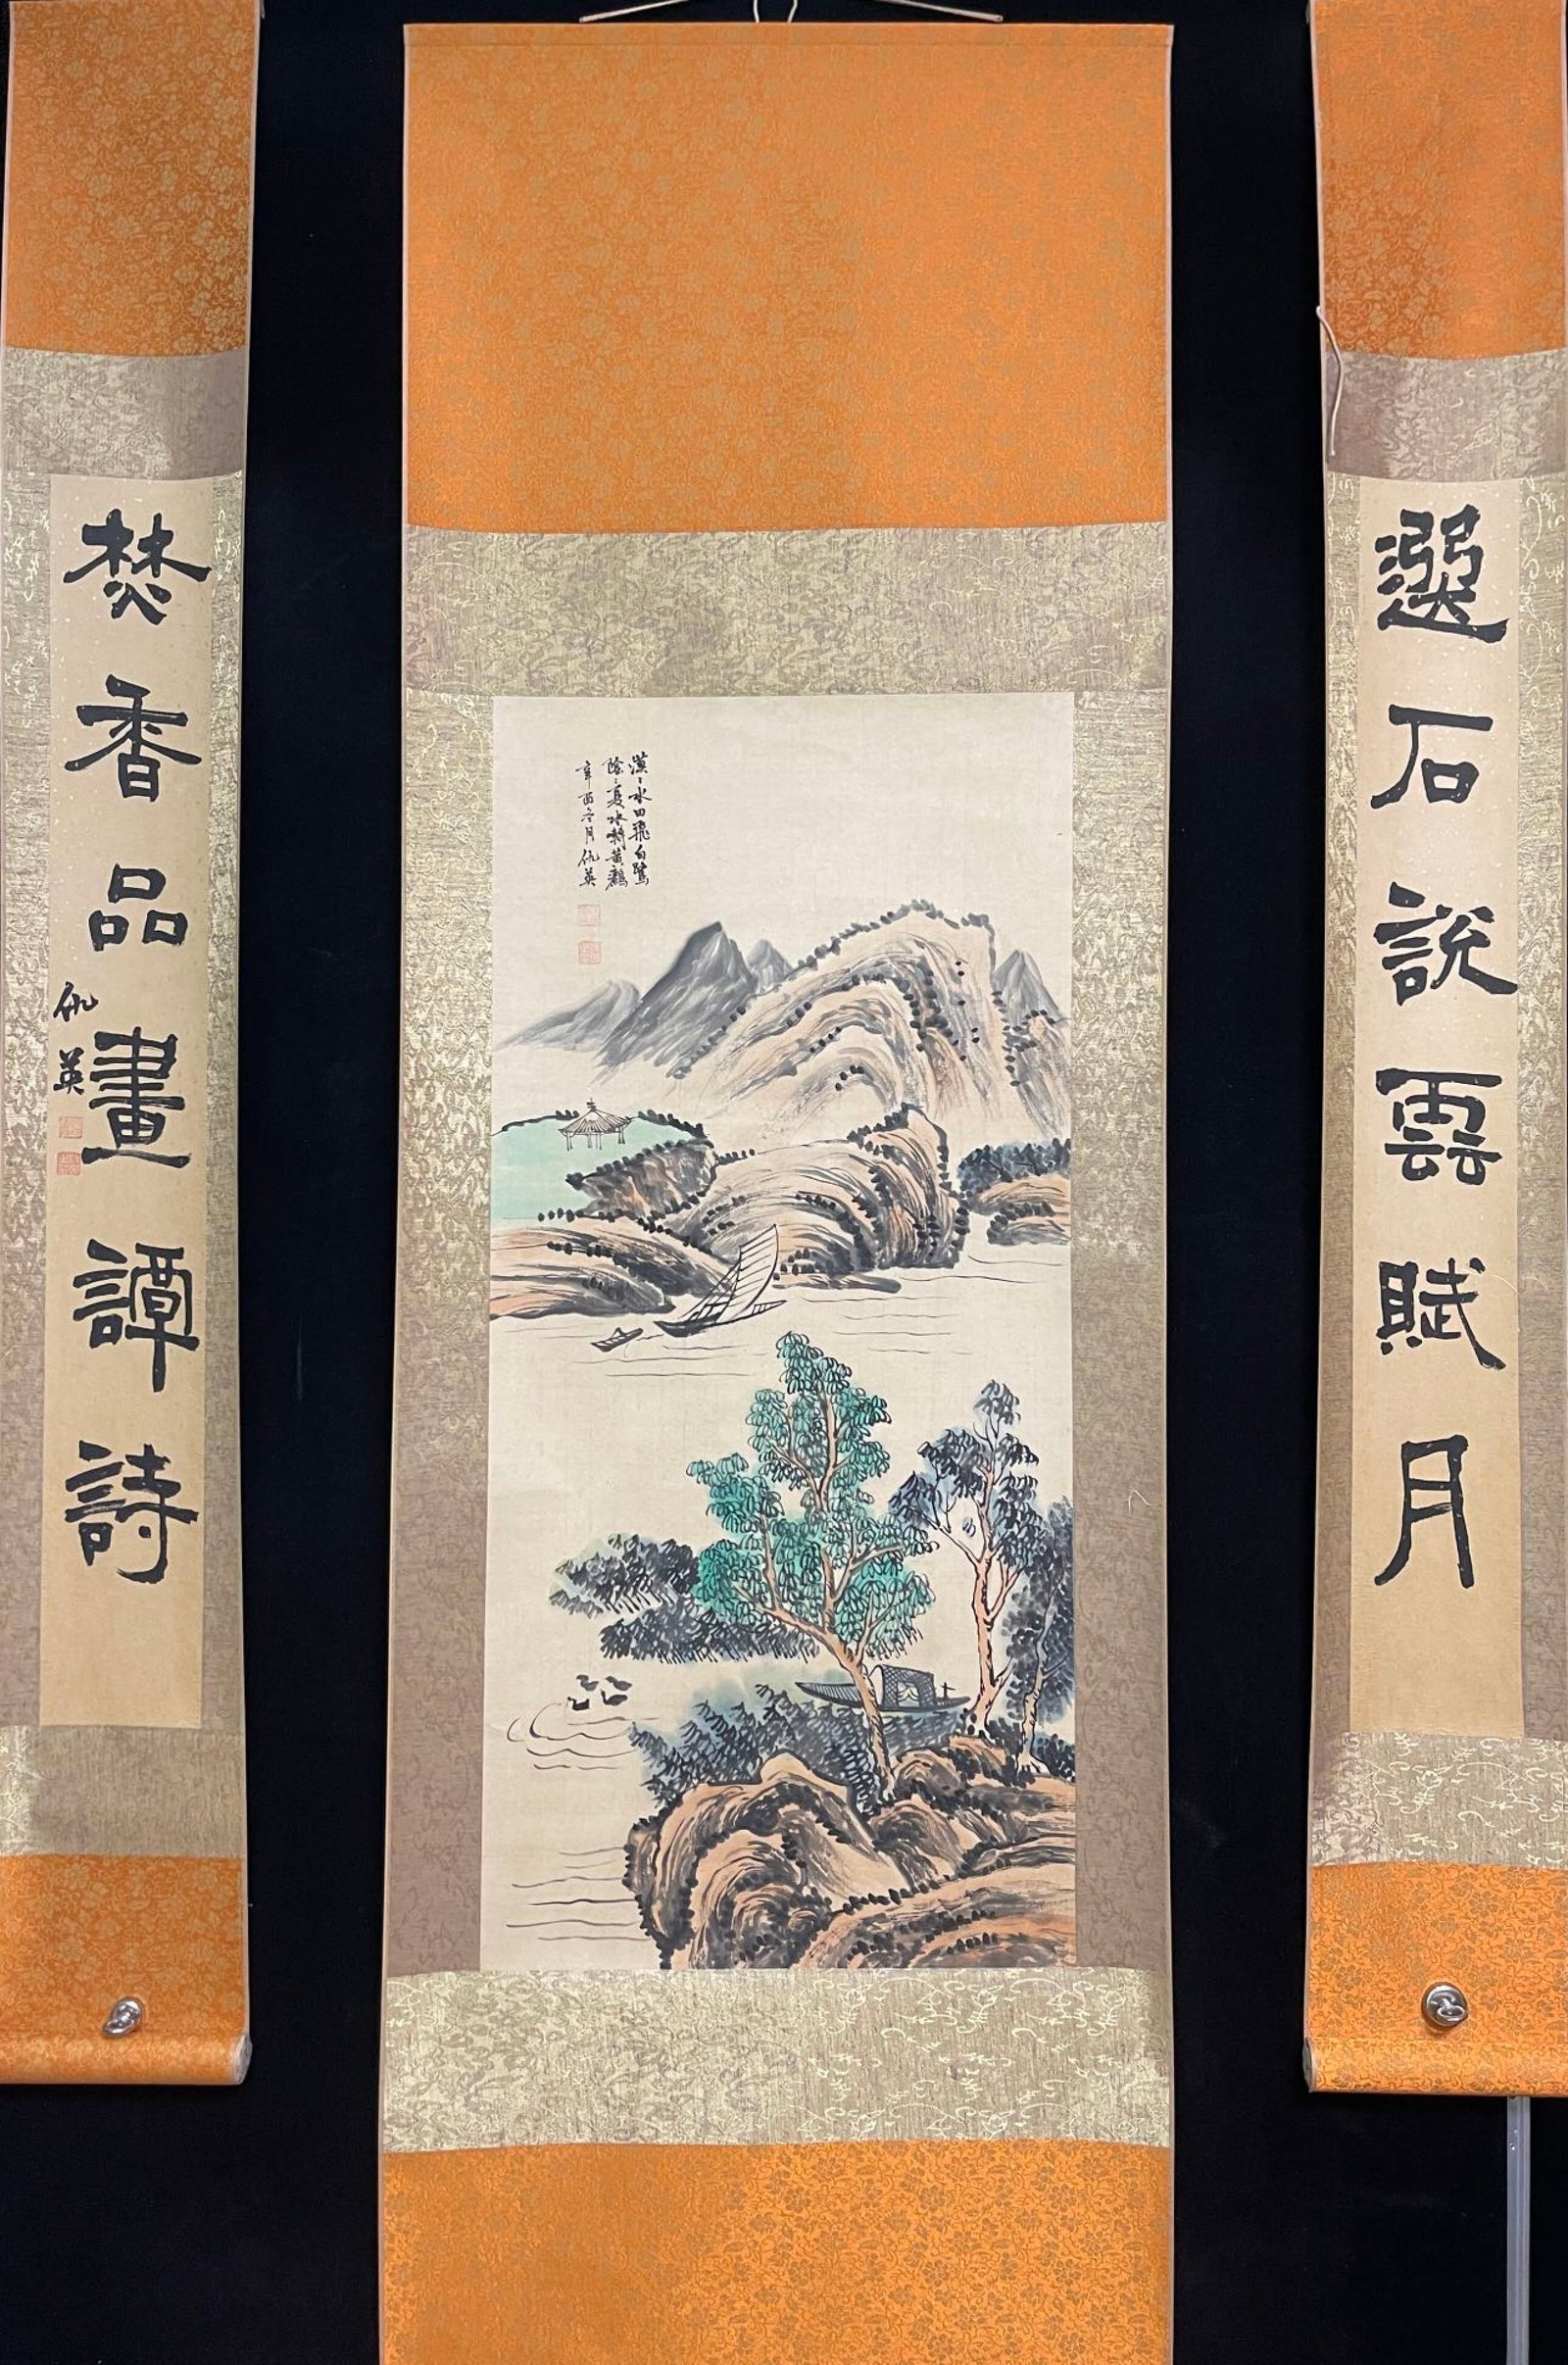 選石說雲賦月
漠〻水田飛白鷺
陰〻夏木囀黃鸝
辛酉冬月仇英
焚香品畫譚詩
仇英